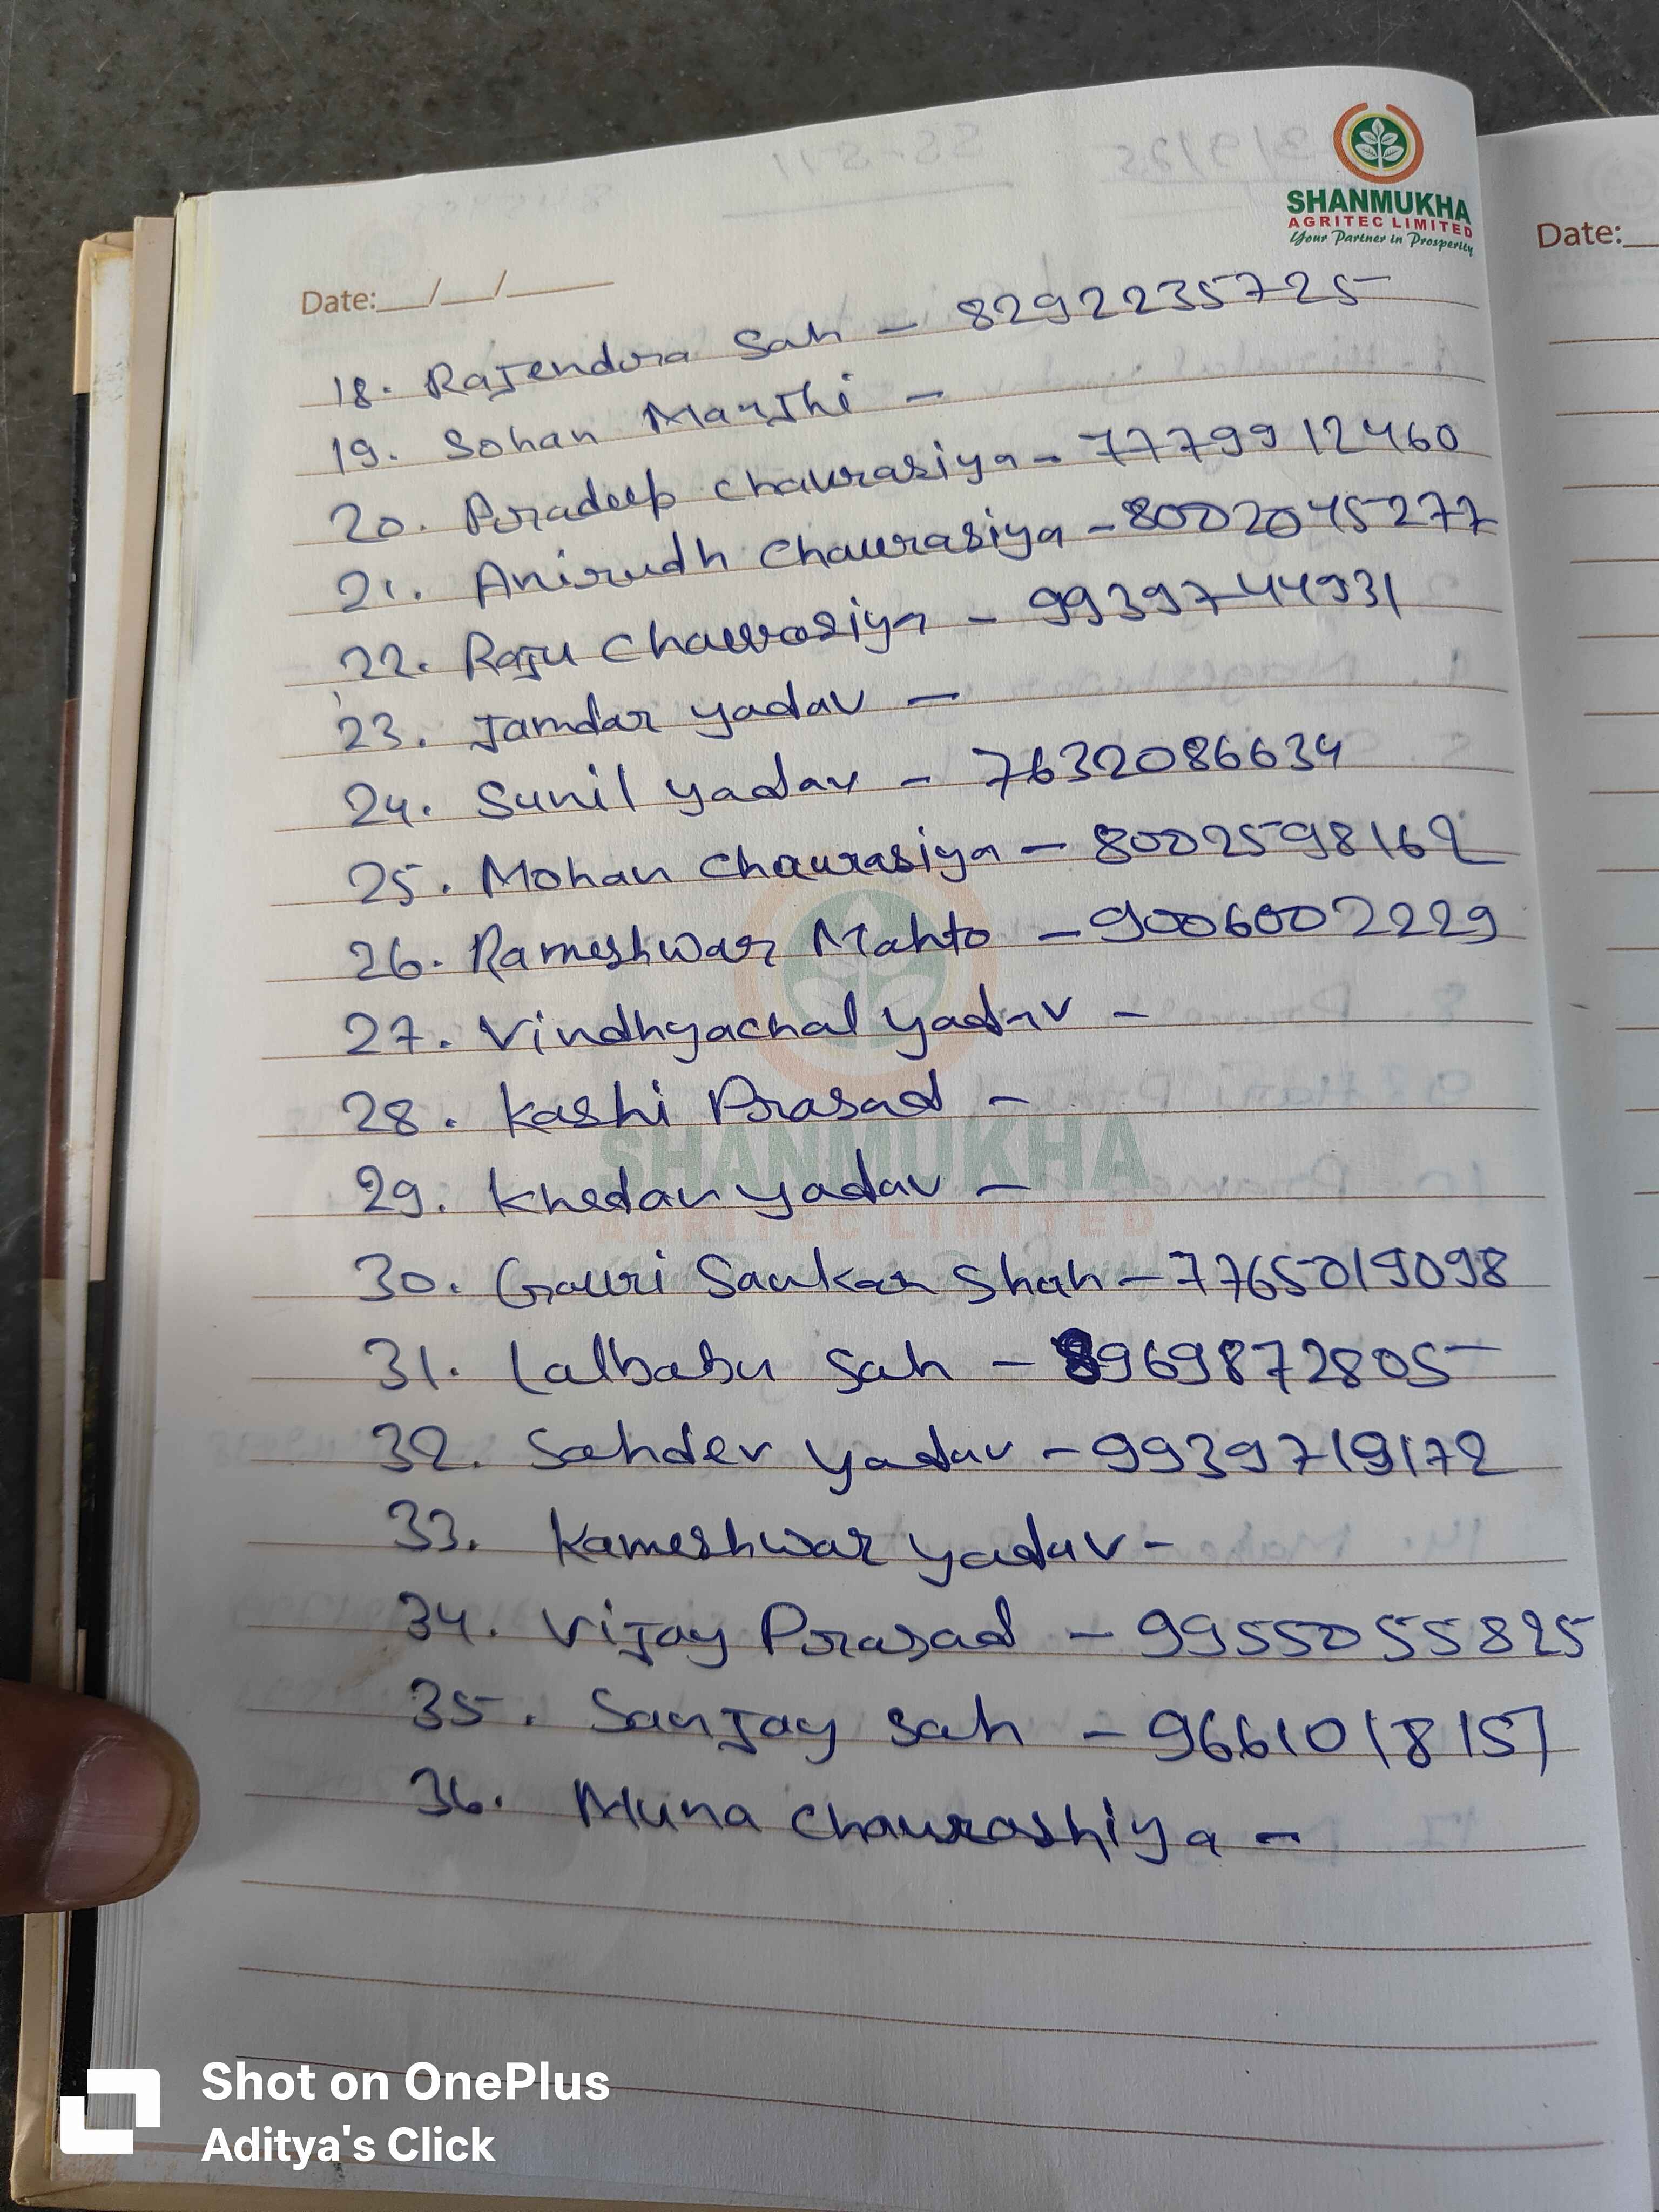 SHANMUKHA
AGRITEC LIMITED
Your Partner in Prosperity
Date:__/__/____
Date:__
18. Rajendra Sah - 8292235725
19. Sohan Manjhi -
20. Pradeep Chaurasiya - 7779912460
21. Anirudh Chaurasiya - 8002045277
22. Raju Chaurasiya - 9939744931
23. Jamdar yadav -
24. Sunil yadav - 7632086634
25. Mohan Chaurasiya - 8002598162
26. Rameshwar Mahto - 9006002229
27. Vindhyachal yadav -
28. Kashi Prasad -
29. Khedan yadav -
30. Gauri Sankar Shah - 7765019098
31. Lalbabu Sah - 8969872805
32. Sahdev yadav - 9939719172
33. Kameshwar yadav -
34. Vijay Prasad - 9955055825
35. Sanjay Sah - 9661018157
36. Muna Chaurashiya -
SHANMUKHA
AGRITEC LIMITED
Shot on OnePlus
Aditya's Click